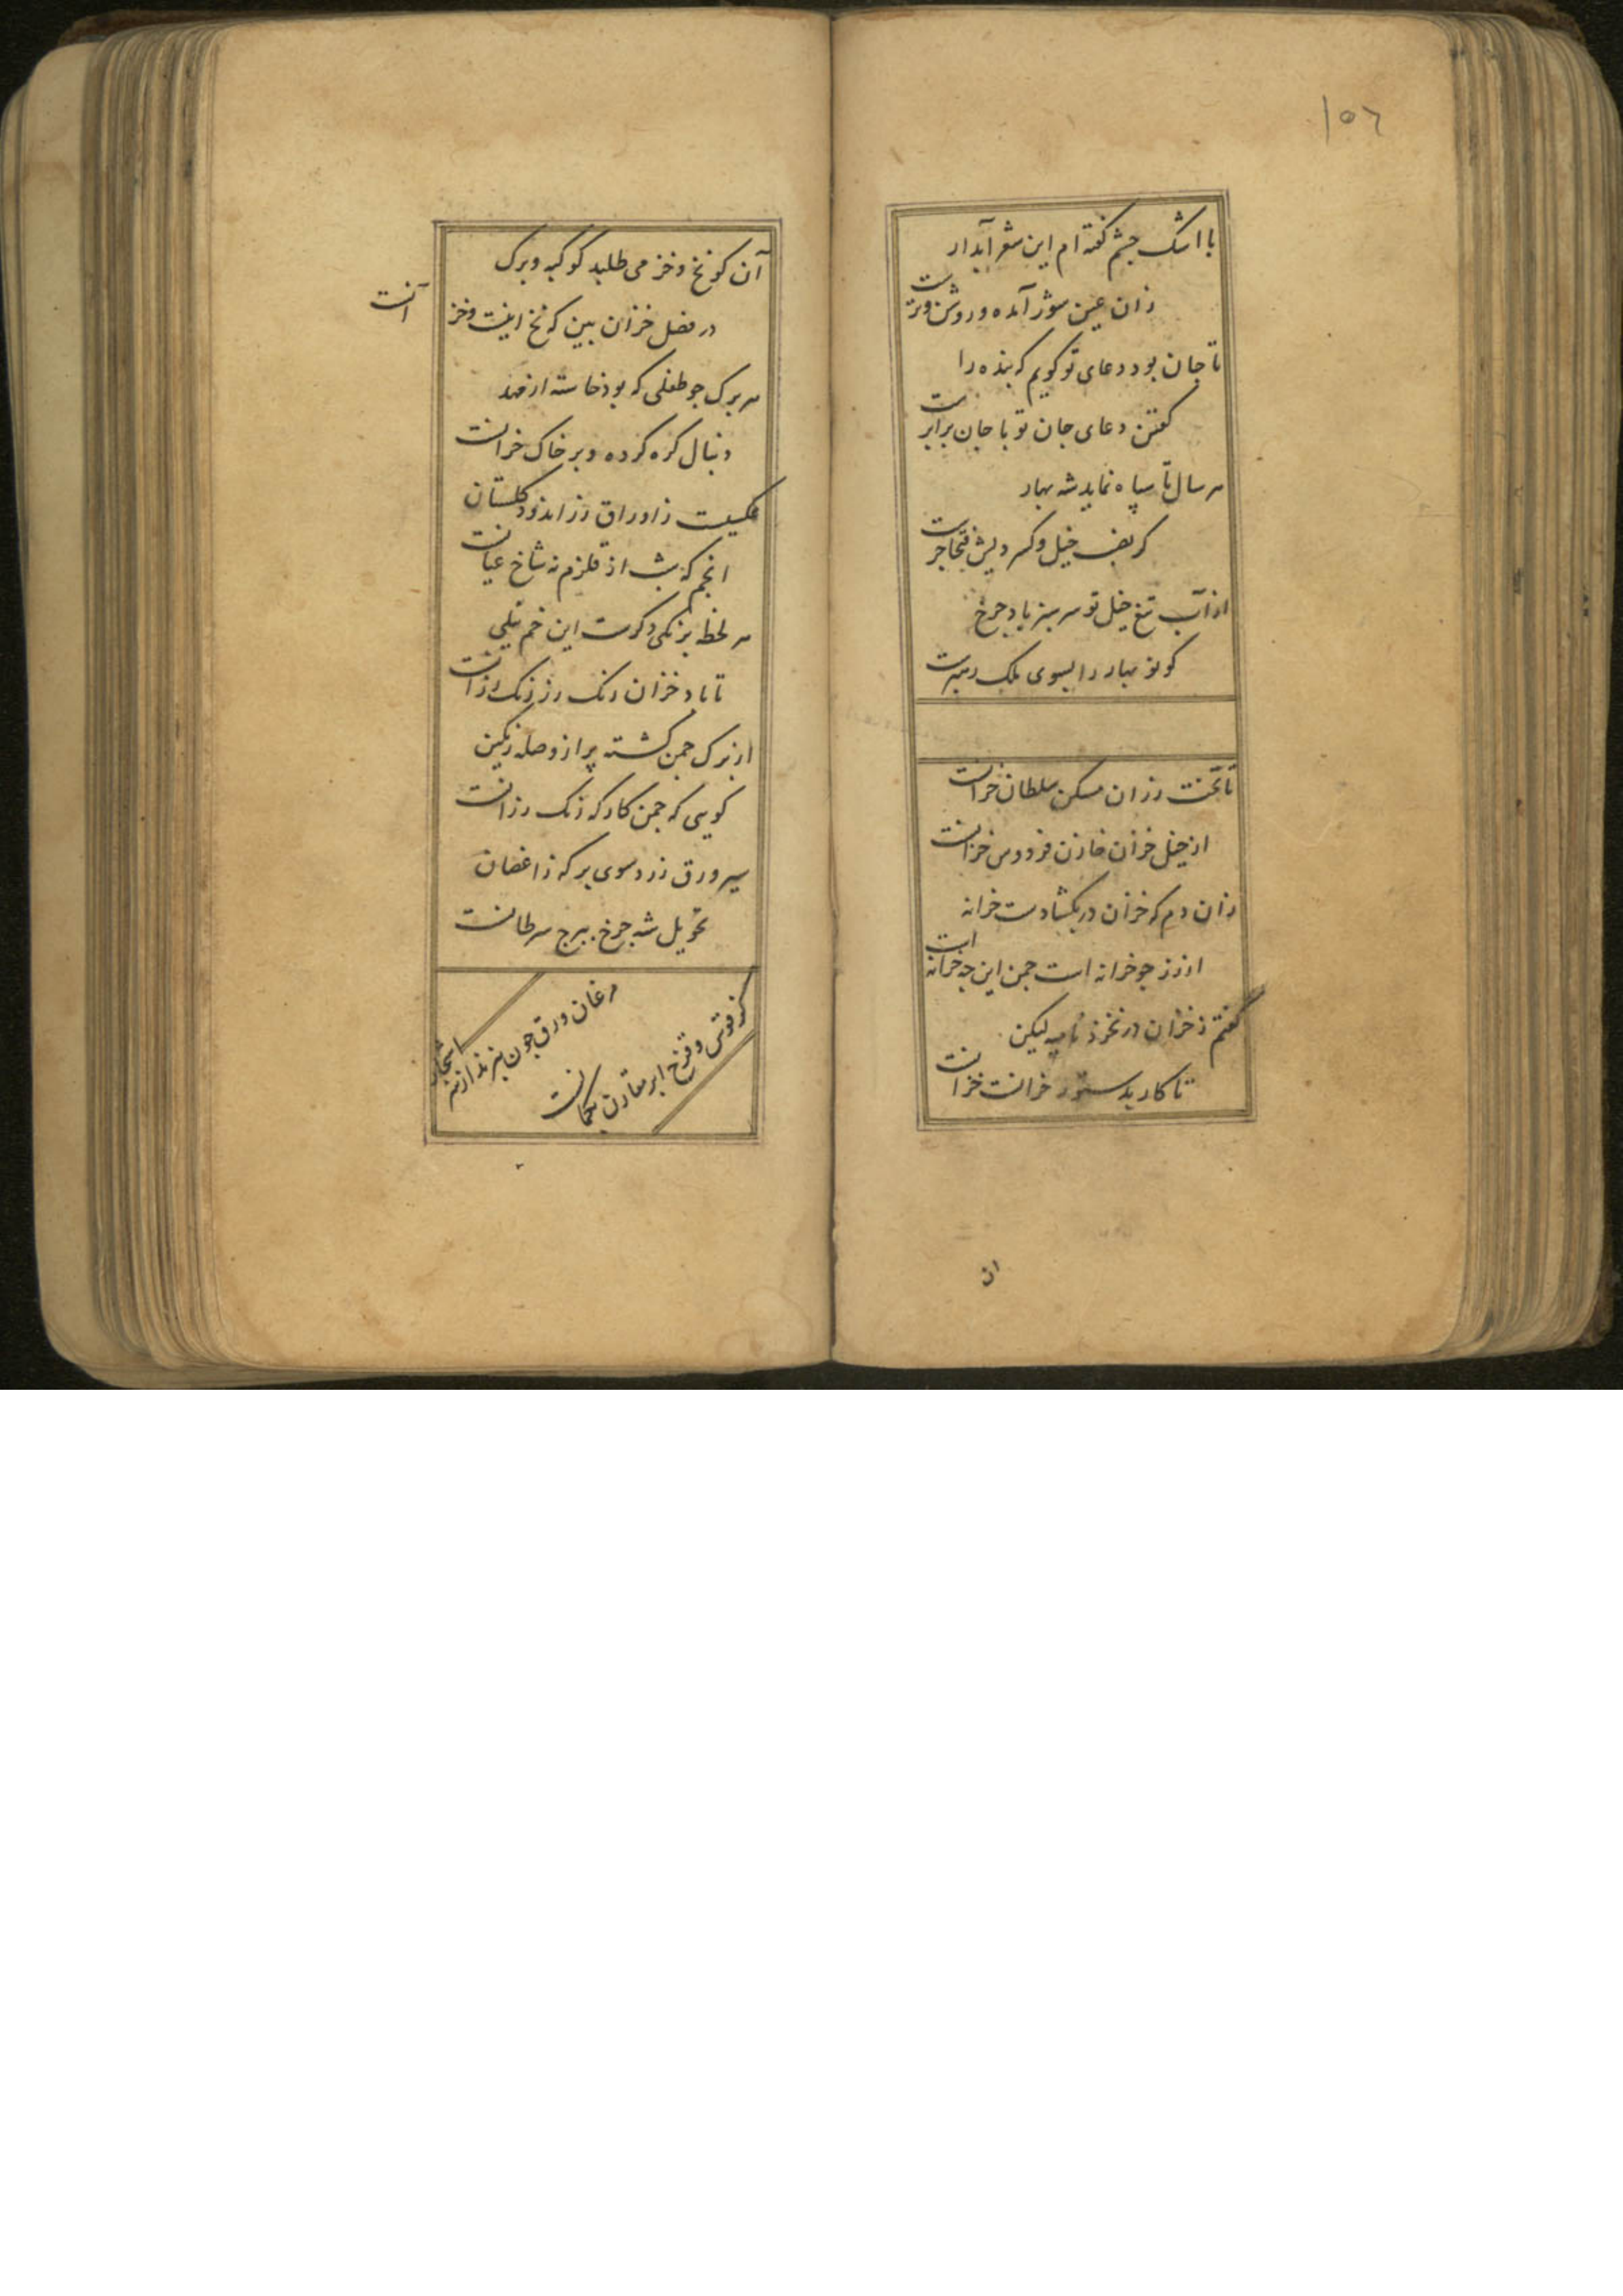 ۱۵۶
با اشک چشم گفته ام این شعر آبدار
زان عین سوز آمده و روشن و ترست
تا جان بود دعای تو گویم که بنده را
گفتن دعای جان تو با جان برابرست
هر سال تا سپاه نماید شه بهار
کز بهر خیل و کسر
از آب تیغ خیل تو سرسبز باد چرخ
کو نو بهار را بسوی ملک رهبرست
تا تخت رزان مسکن سلطان خزانست
از خیل خزان خازن فردوس خزانست
زان دم که خزان در بکشادست خزانه
از زر جو خزانه است جمن این جه خزانه است
گفتم ز خزان در نخزد نامیه لیکن
تا کار بدستور خزانست خزانست
ان
آن کو نخ و خز می طلبد کو کیه و برک
در فصل خزان بین که نخ اینست و خز آنست
هر برک جو طفلی که بود خاسته از مهد
دنبال کره کرده و بر خاک خزانست
عکسیست ز اوراق رز اندود کلستان
انجم که شب از قلزم نه شاخ عیانست
هر لحظه برنکی دکرست این خم نیلی
تا باد خزان رنک رز رنک رزانست
از برک جمن کشته پر از وصله رنکین
کویی که جمن کارکه رنک رزانست
سیر ورق زرد سوی برکه ز اغصان
تحویل شه جرخ ببرج سرطانست
مرغان ورق جون نپرند از سر اشجار
کز قوس و قزح ابر مقارن بکمانست